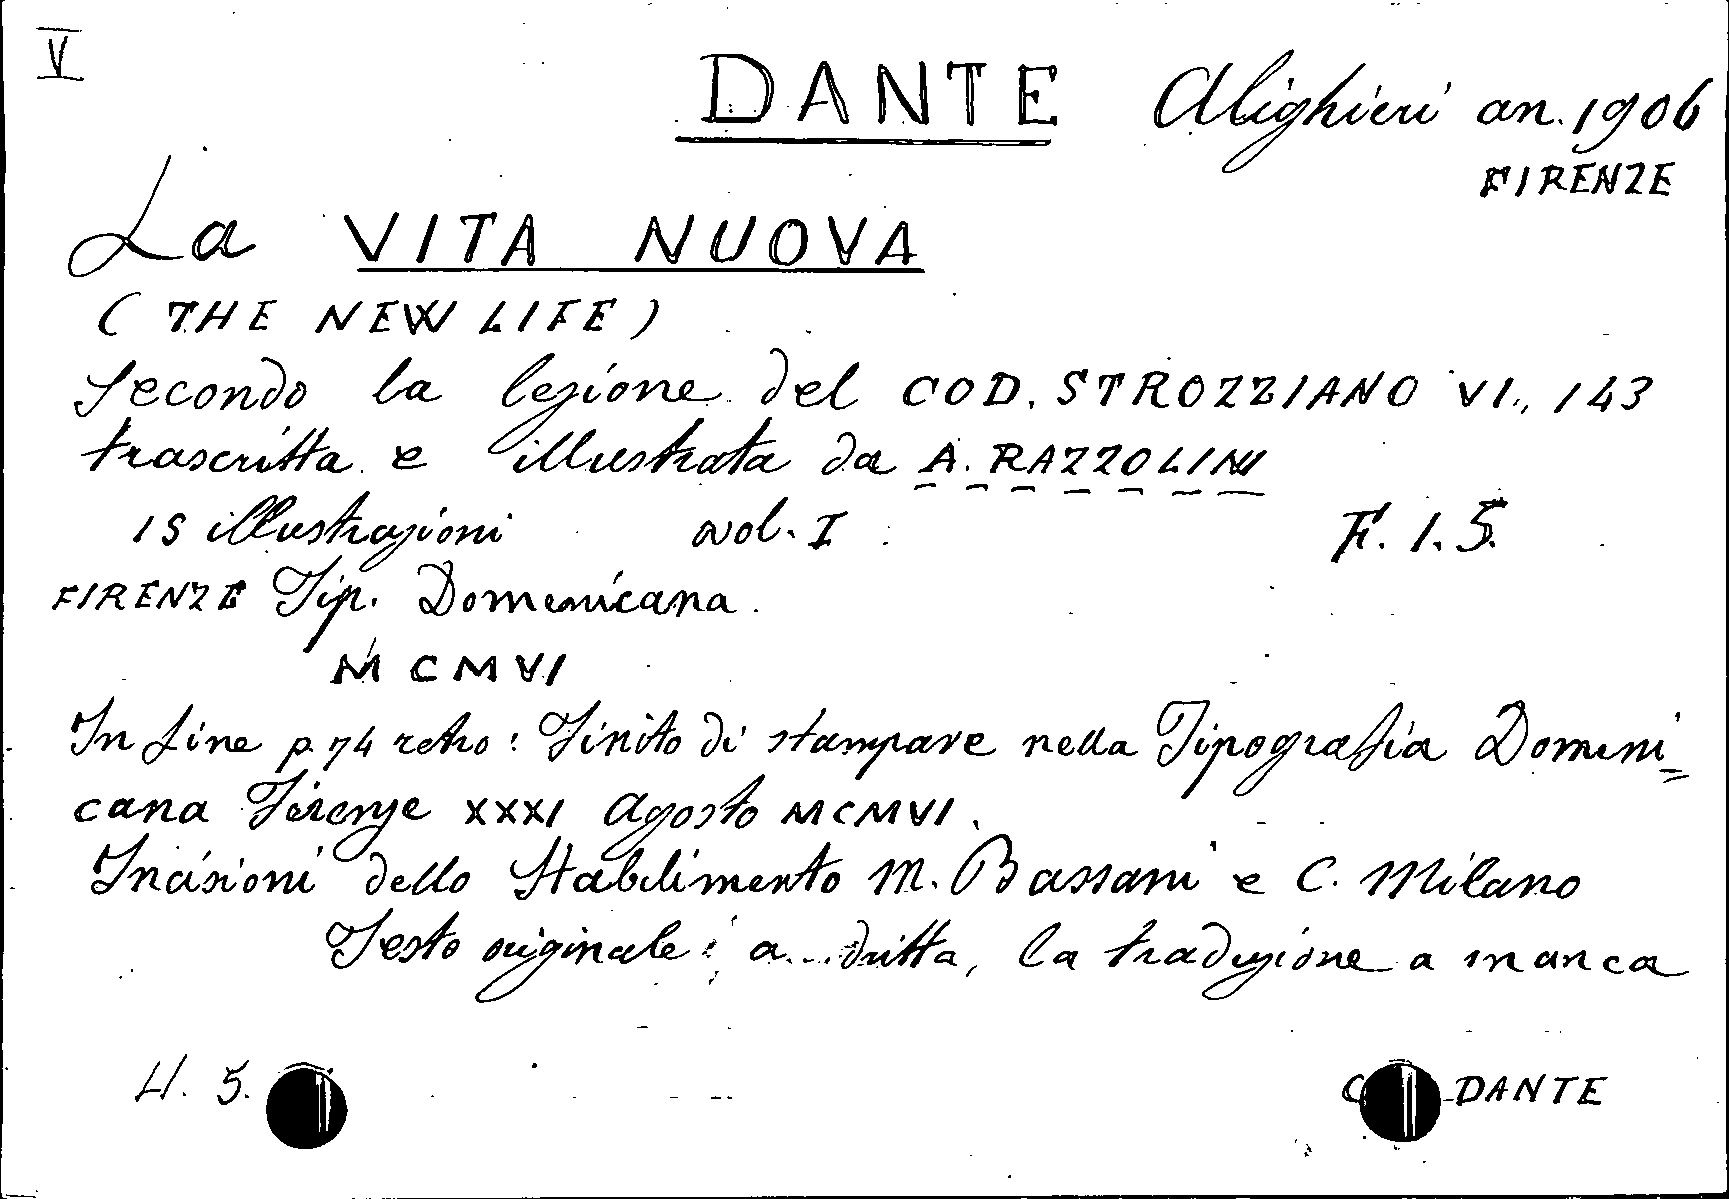 V
DANTE Alighieri an. 1906
FIRENZE
La VITA NUOVA
(THE NEW LIFE)
Secondo la lezione del COD. STROZZIANO VI., 143
trascritta e illustrata da A. RAZZOLINI
15 illustrazioni vol. I F. 1. 5.
FIRENZE Tip. Domenicana.
MCMVI
In fine p. 74 retro: Finito di stampare nella Tipografia Domeni=
cana Firenze XXXI Agosto MCMVI.
Incisioni dello Stabilimento M. Bassani e C. Milano
Testo originale: a dritta, la traduzione a manca
5. DANTE